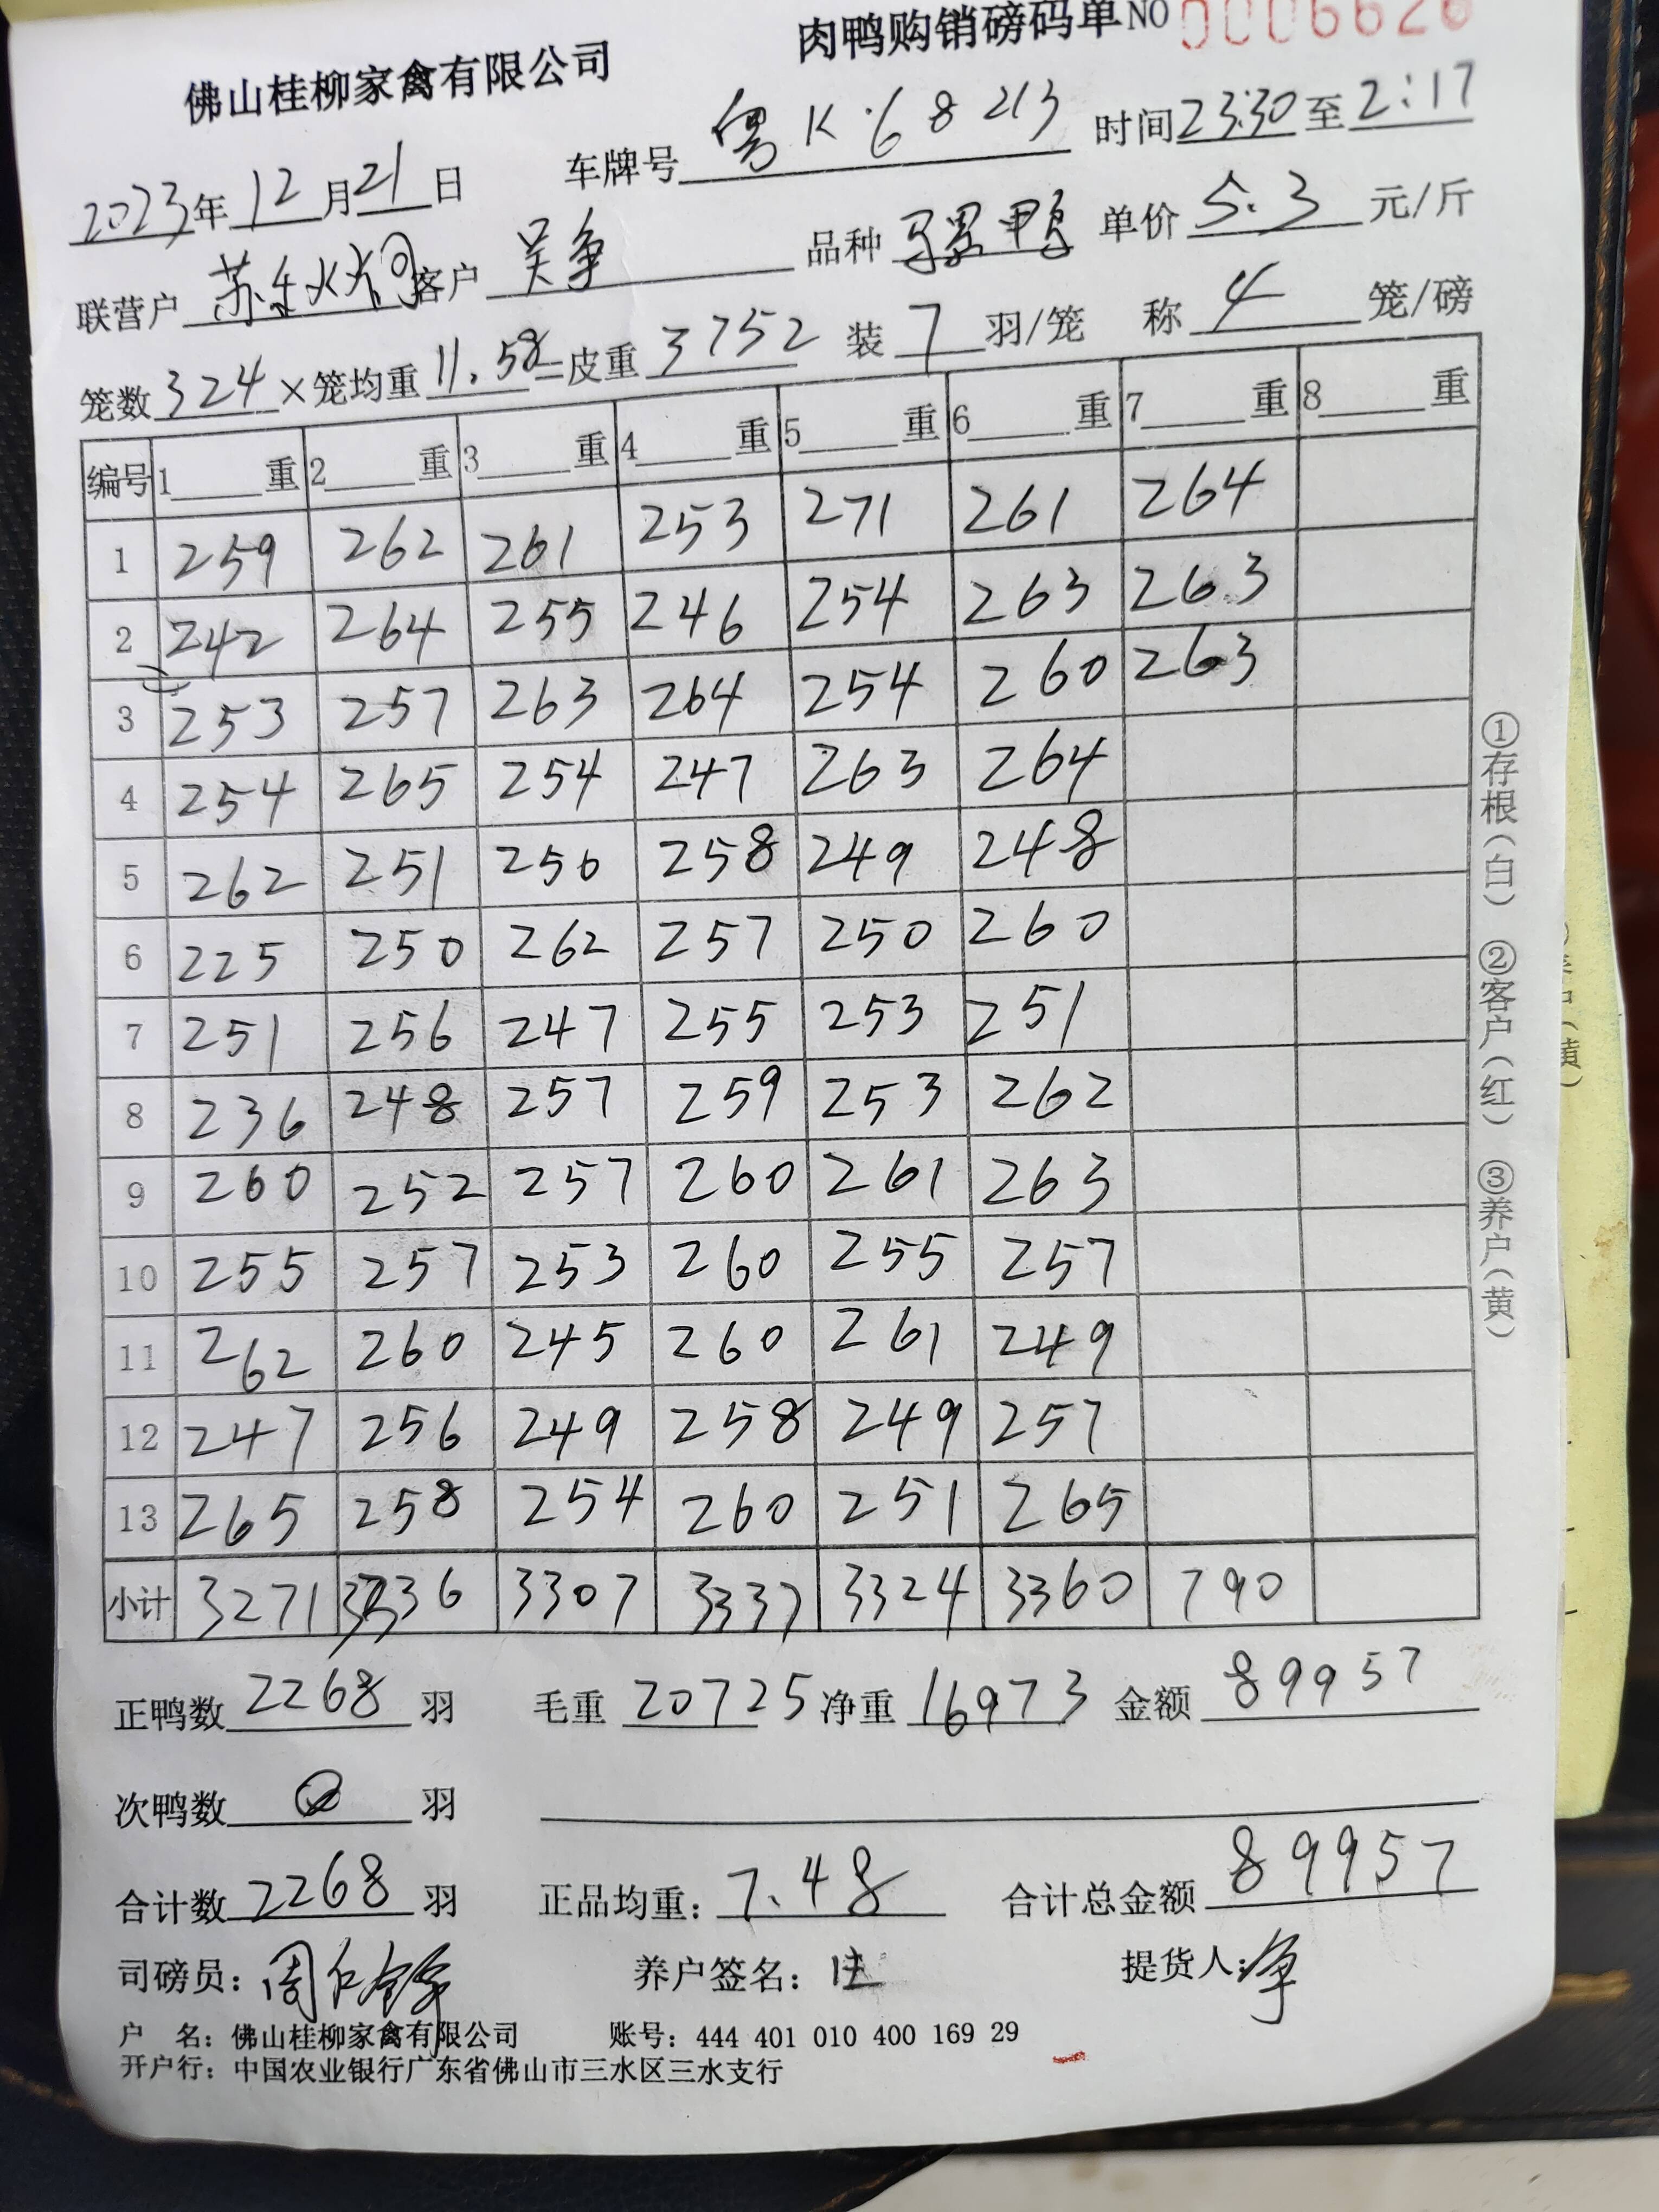 佛山桂柳家禽有限公司 肉鸭购销磅码单 NO 0006626
2023年12月21日 车牌号 粤K·68213 时间 23:30 至 2:17
联营户 苏 客户 吴争 品种 骡鸭 单价 5.3 元/斤
笼数 324 ×笼均重 11.58 =皮重 3752 装 7 羽/笼 称 4 笼/磅
编号 1 重 2 重 3 重 4 重 5 重 6 重 7 重 8 重
1 259 262 261 253 271 261 264
2 242 264 255 246 254 263 263
3 253 257 263 264 254 260 263
4 254 265 254 247 263 264
5 262 251 250 258 249 248
6 225 250 262 257 250 260
7 251 256 247 255 253 251
8 236 248 257 259 253 262
9 260 252 257 260 261 263
10 255 257 253 260 255 257
11 262 260 245 260 261 249
12 247 256 249 258 249 257
13 265 258 254 260 251 265
小计 3271 3336 3307 3337 3324 3360 790
正鸭数 2268 羽 毛重 20725 净重 16973 金额 89957
次鸭数 羽
合计数 2268 羽 正品均重: 7.48 合计总金额 89957
司磅员: 周 养户签名: 提货人: 争
户 名: 佛山桂柳家禽有限公司 账号: 444 401 010 400 169 29
开户行: 中国农业银行广东省佛山市三水区三水支行
①存根(白) ②客户(红) ③养户(黄)